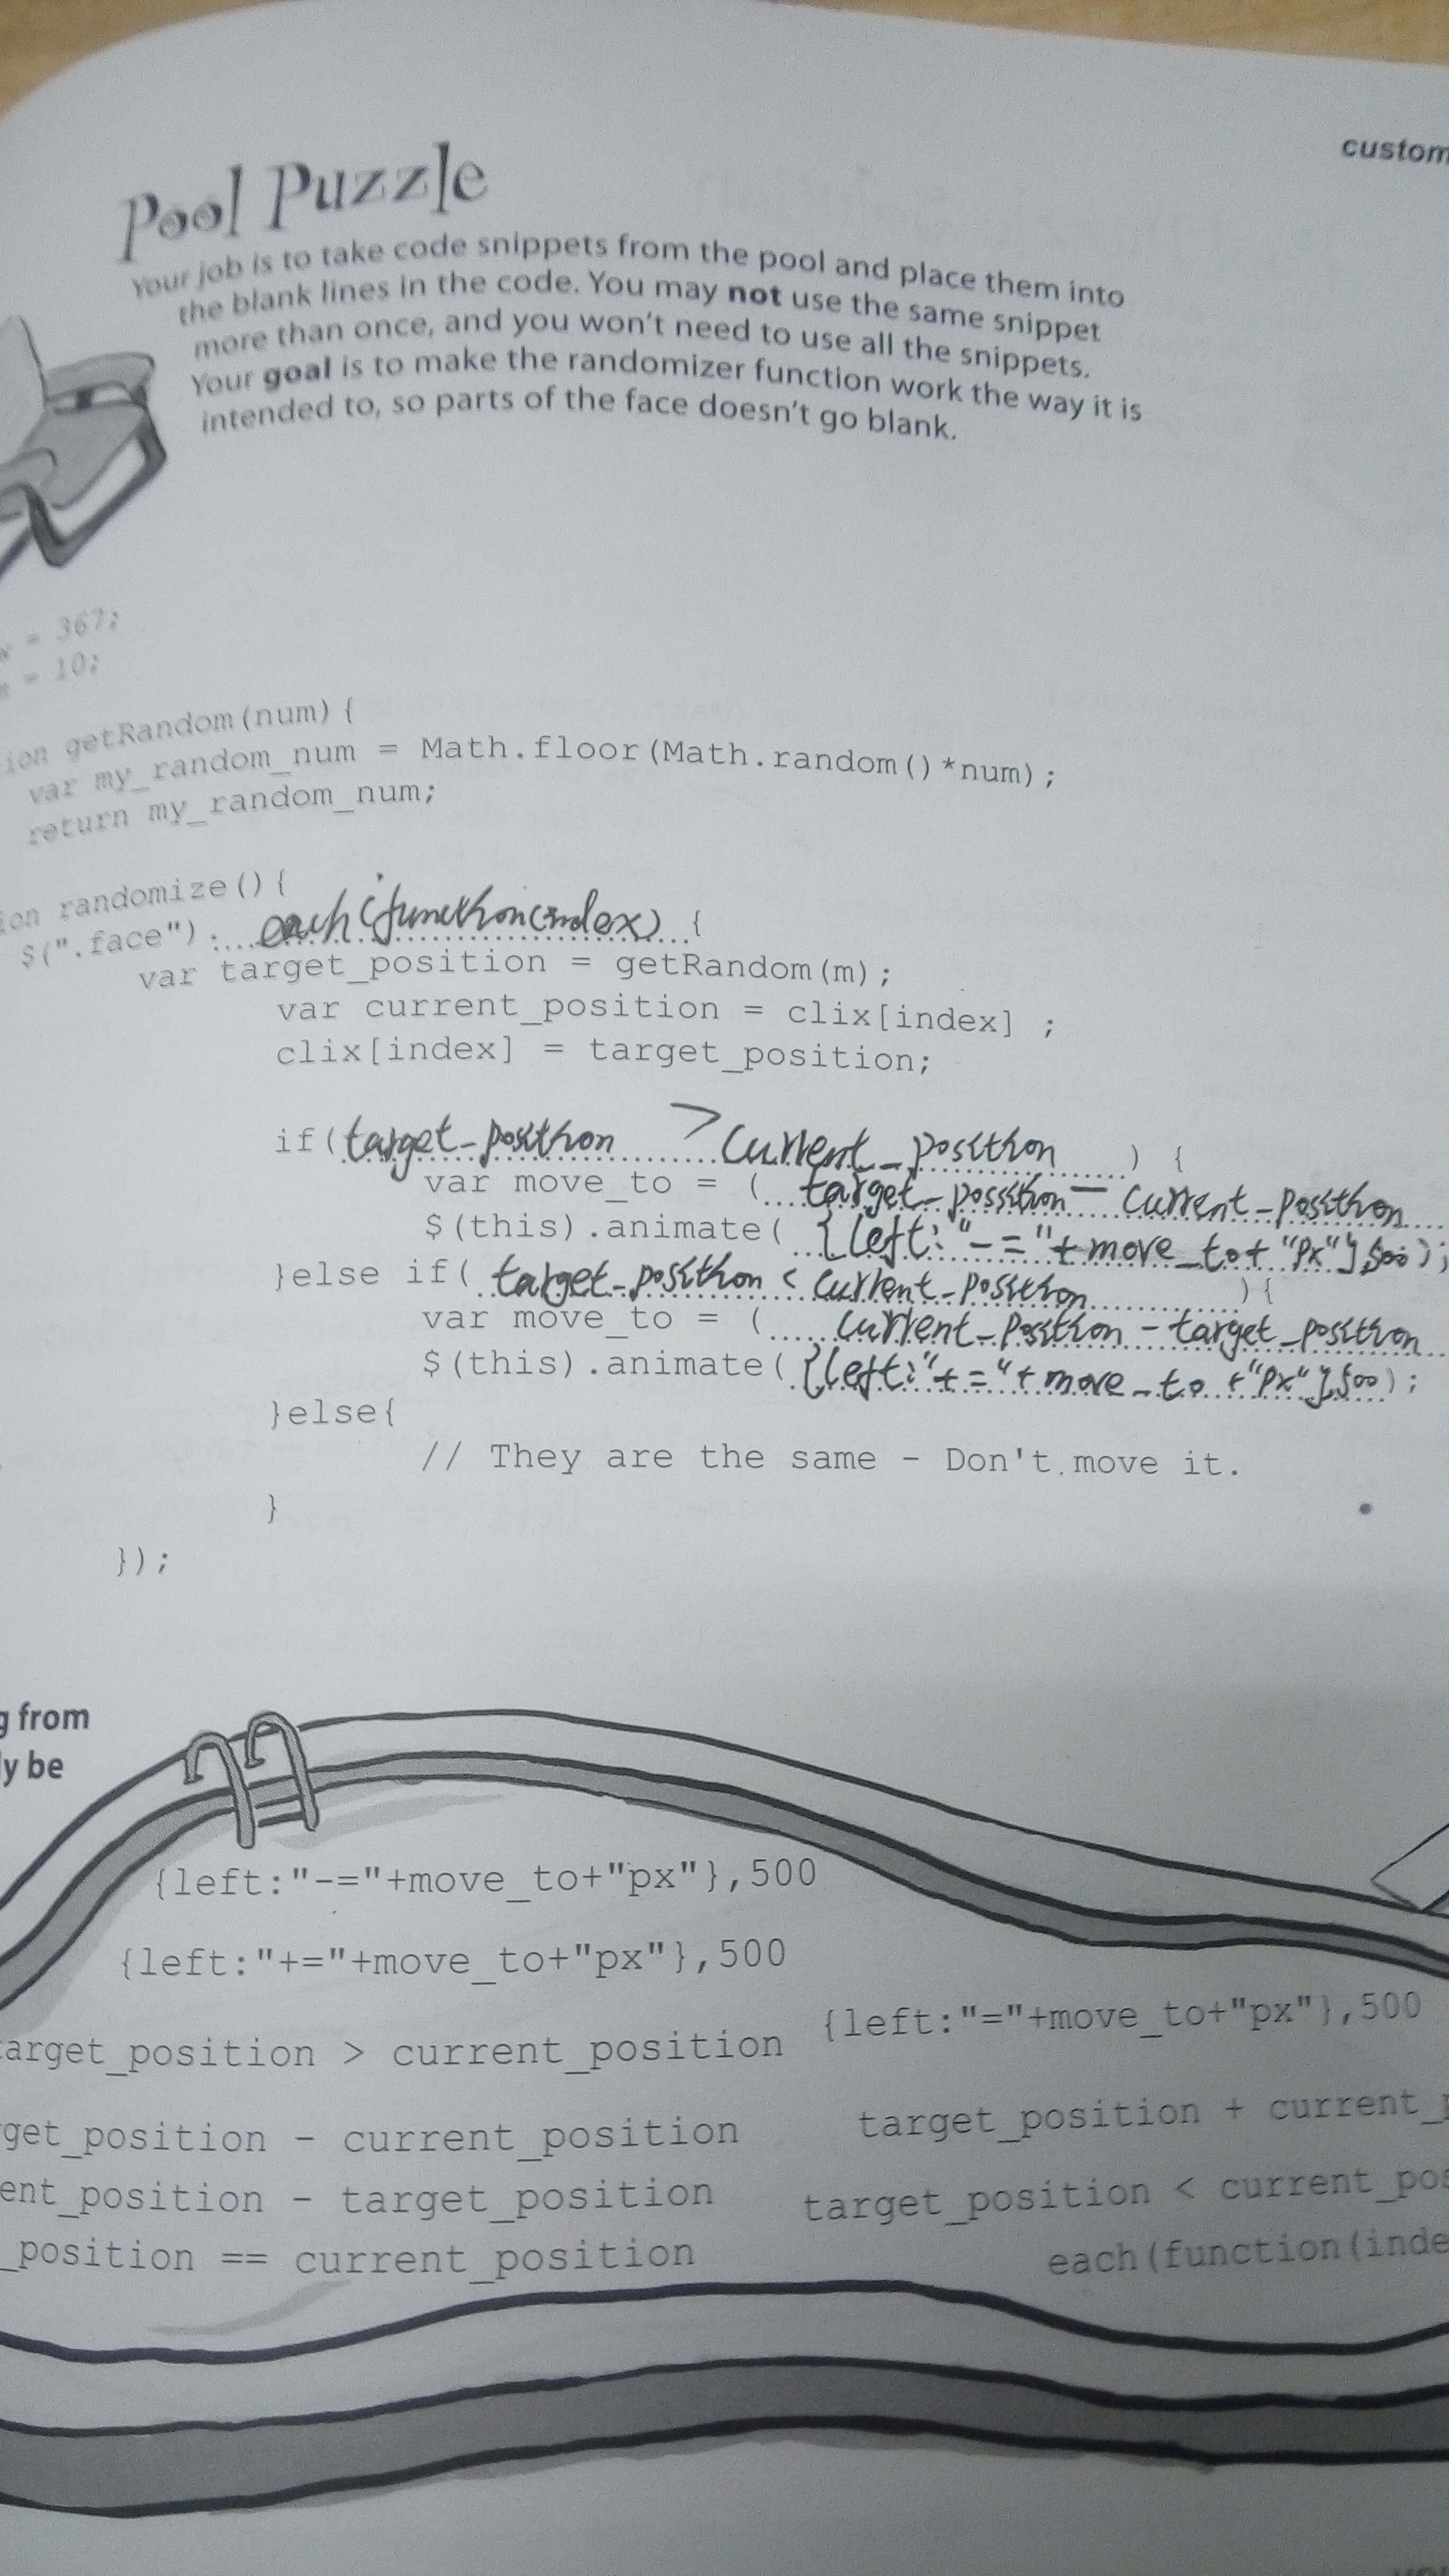 custom
Pool Puzzle
Your job is to take code snippets from the pool and place them into
the blank lines in the code. You may not use the same snippet
more than once, and you won't need to use all the snippets.
Your goal is to make the randomizer function work the way it is
intended to, so parts of the face doesn't go blank.
= 367;
= 10;
ion getRandom(num){
var my_random_num = Math.floor(Math.random()*num);
return my_random_num;
ion randomize(){
$(".face").each(function(index) {
var target_position = getRandom(m);
var current_position = clix[index] ;
clix[index] = target_position;
if(target_position > current_position) {
var move_to = (target_position - current_position
$(this).animate({left:"-="+move_to+"px"},500);
}else if(target_position < current_position){
var move_to = (current_position - target_position
$(this).animate({left:"+="+move_to+"px"},500);
}else{
// They are the same - Don't move it.
}
});
g from
y be
{left:"-="+move_to+"px"},500
{left:"+="+move_to+"px"},500
{left:"="+move_to+"px"},500
arget_position > current_position
target_position + current_
get_position - current_position
ent_position - target_position
target_position < current_pos
_position == current_position
each(function(inde